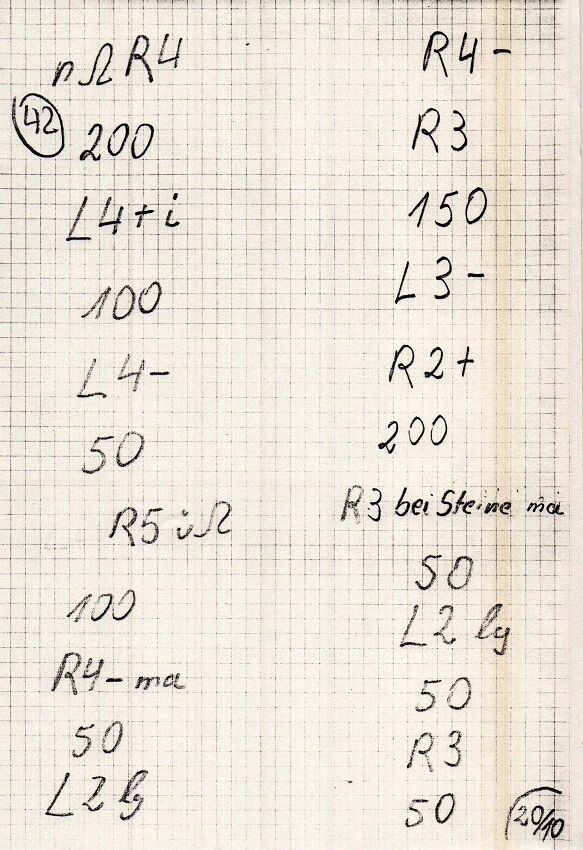 n Ω R4
42
200
L4+i
100
L4-
50
R5 ü Ω
100
R4- ma
50
L2 lg
R4-
R3
150
L3-
R2+
200
R3 bei Steine ma
50
L2 lg
50
R3
50
20/10